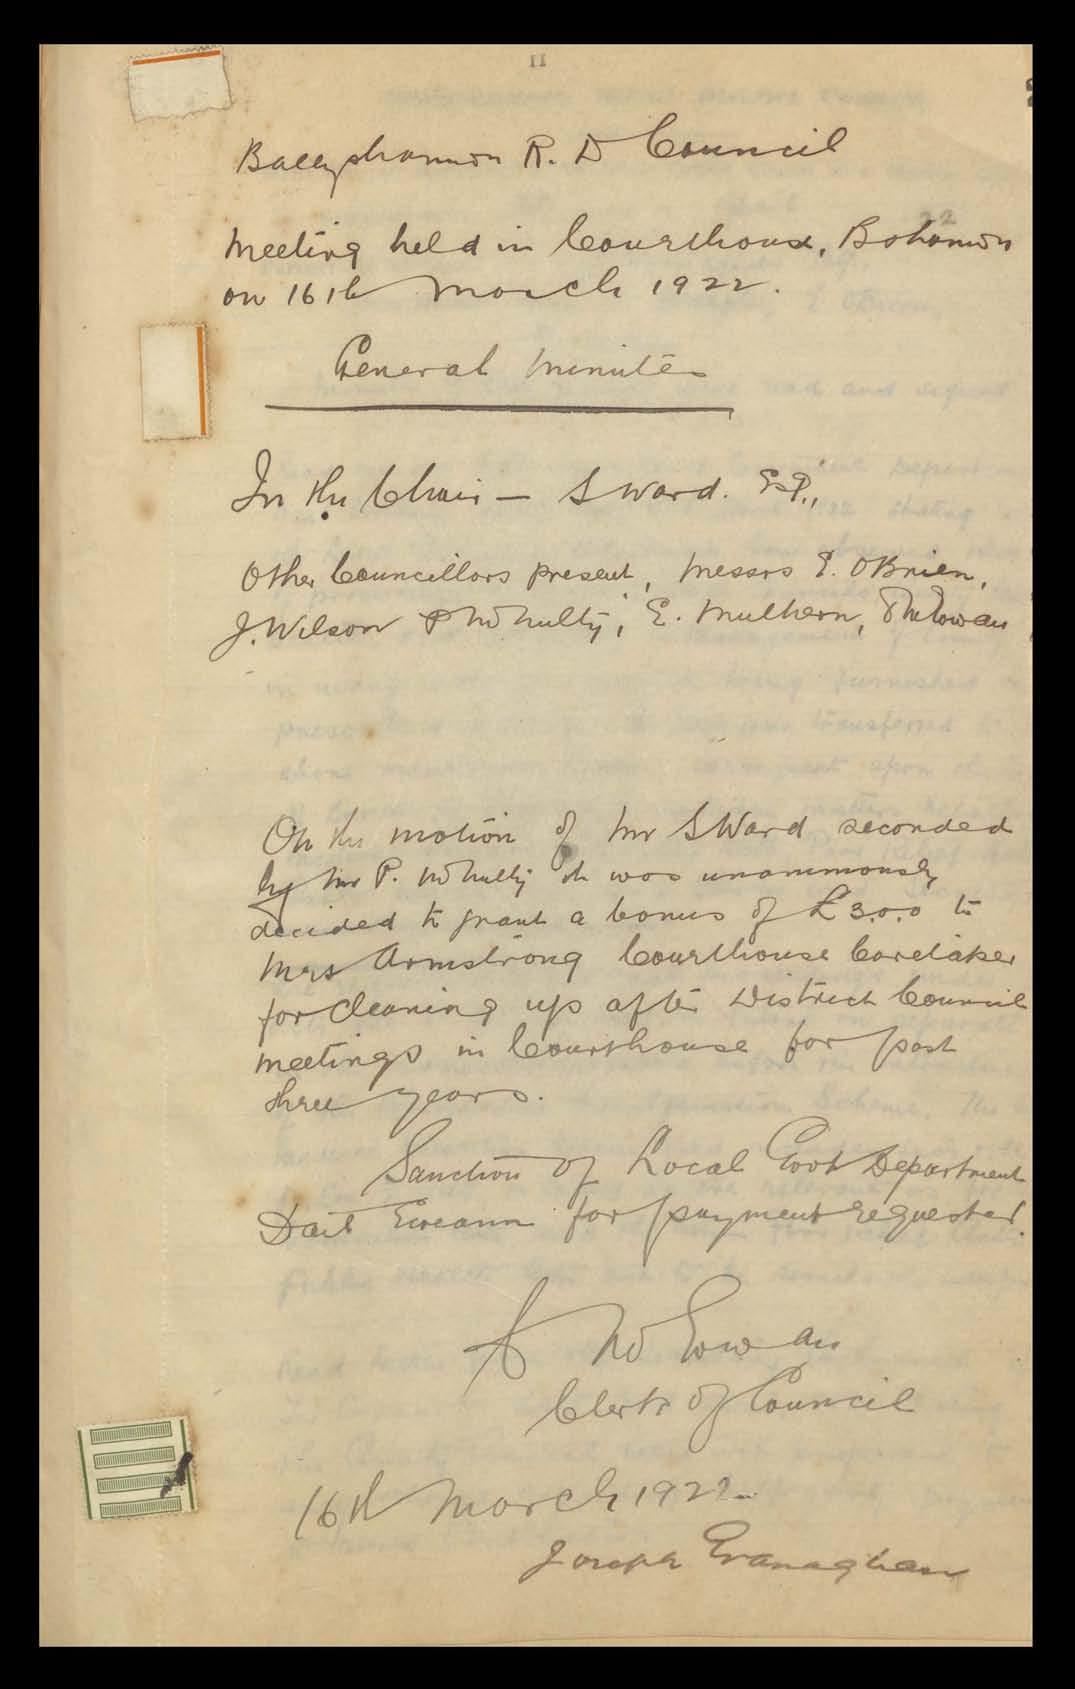 11
Ballyshannon R. D Council
Meeting held in Courthouse, Bshannon
on 16th March 1922.
General Minutes
In the Chair - S Ward. Esq.,
Other Councillors present, Messrs E. OBrien,
J. Wilson P McNulty, E. Mulhern,
On the motion of Mr S Ward seconded
by Mr P. McNulty it was unanimously
decided to grant a bonus of £3.0.0 to
Mrs Armstrong Courthouse Caretaker
for cleaning up after District Council
meetings in Courthouse for past
three years.
Sanction of Local Govt Department
Dail Eireann for payment requested.
McGowan
Clerk of Council
16th March 1922
Joseph Granaghan